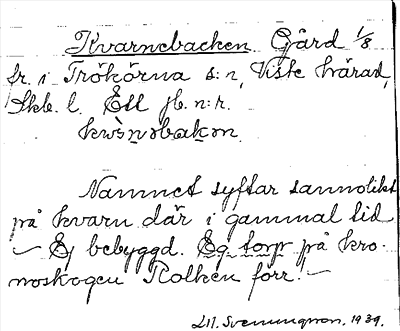 Kvarnebacken Gård 1/8
fr. i Trökörna s:n, Viste härad,
Skb. l. Ett jb. n:r.
Namnet syftar sannolikt
på kvarn där i gammal tid
— Ej bebyggd. Eg. torp på kro-
noskogen Rolken förr! —
M. Svenungsson. 1939.